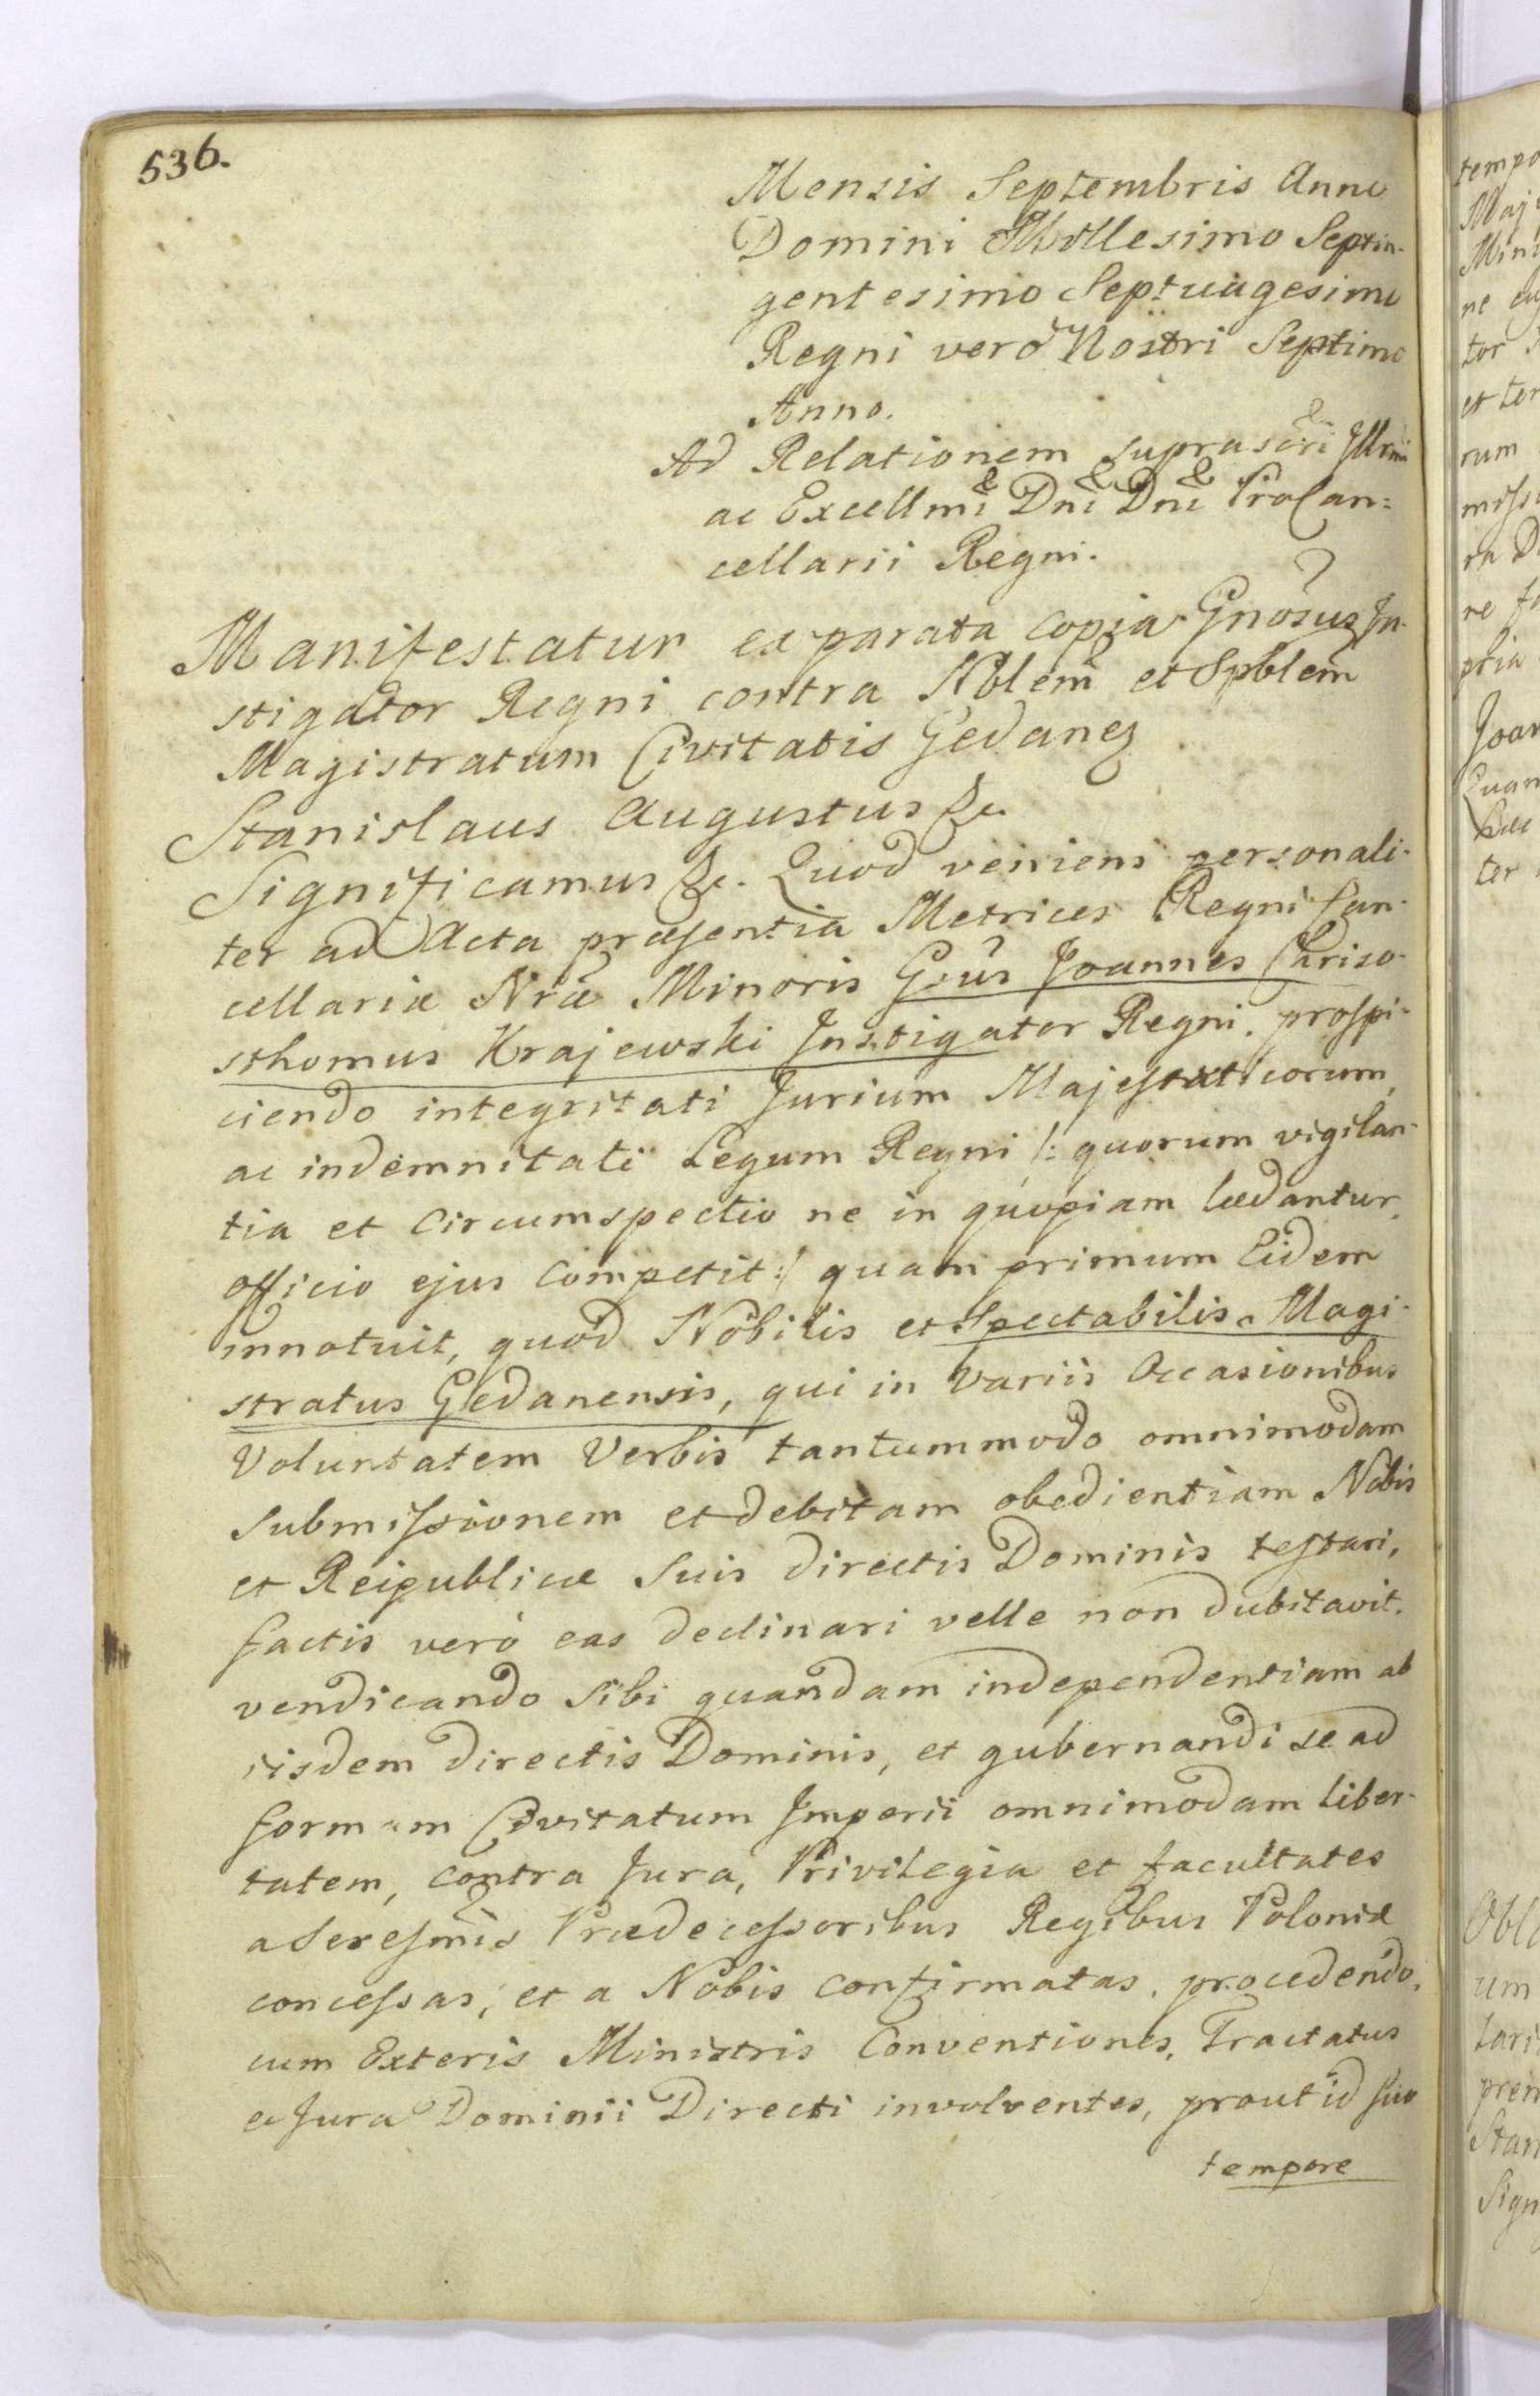 536.
Mensis Septembris Anno
Domini Millesimo Septin-
gentesimo Septuagesimo
Regni vero Nostri Septimo
Anno.
Ad Relationem suprascri Illrmi
ac Excellmi Dni Dni ProCan=
cellarii Regni.
Manifestatur ex parata copia Gnosus In-
stigator Regni contra Nblem et Spblem
Magistratum Civitatis Gedanez
Stanislaus Augustus &c.
Significamus &c. Quod veniens personali-
ter ad Acta præsentia Metrices Regni Can-
cellariæ Nræ Minoris Gsus Joannes Chriso-
sthomus Krajewski Instigator Regni. prospi-
ciendo integritati Jurium Majestaticorum,
ac indemnitati Legum Regni /: quorum vigilan-
tia et Circumspectio ne in quopiam lædantur,
officio ejus Competit :/ quam primum Eidem
innotuit, quod Nobilis et Spectabilis Magi-
stratus Gedanensis, qui in Variis Occasionibus
Voluntatem Verbis tantummodo omnimodam
Submissionem et debitam obedientiam Nobis
et Reipublicæ Suis directis Dominis testari,
factis verò eas declinari velle non dubitavit.
vendicando Sibi quandam independentiam ab
iisdem directis Dominis, et gubernandi se ad
formam Civitatum Imperii omnimodam liber-
tatem, Contra Jura, Privilegia et facultates
a Seresmis Prædecessoribus Regibus Poloniæ
concessas, et a Nobis confirmatas, procedendo,
cum Exteris Ministris Conventiones, Tractatus
ex Jura Dominii Directi involventes, prout id suo
tempore
tempo
Maj
Min
tor
et ter
rum
miss
pria
Joan
Quan
ter
um
tari
prem
Stan
Sign